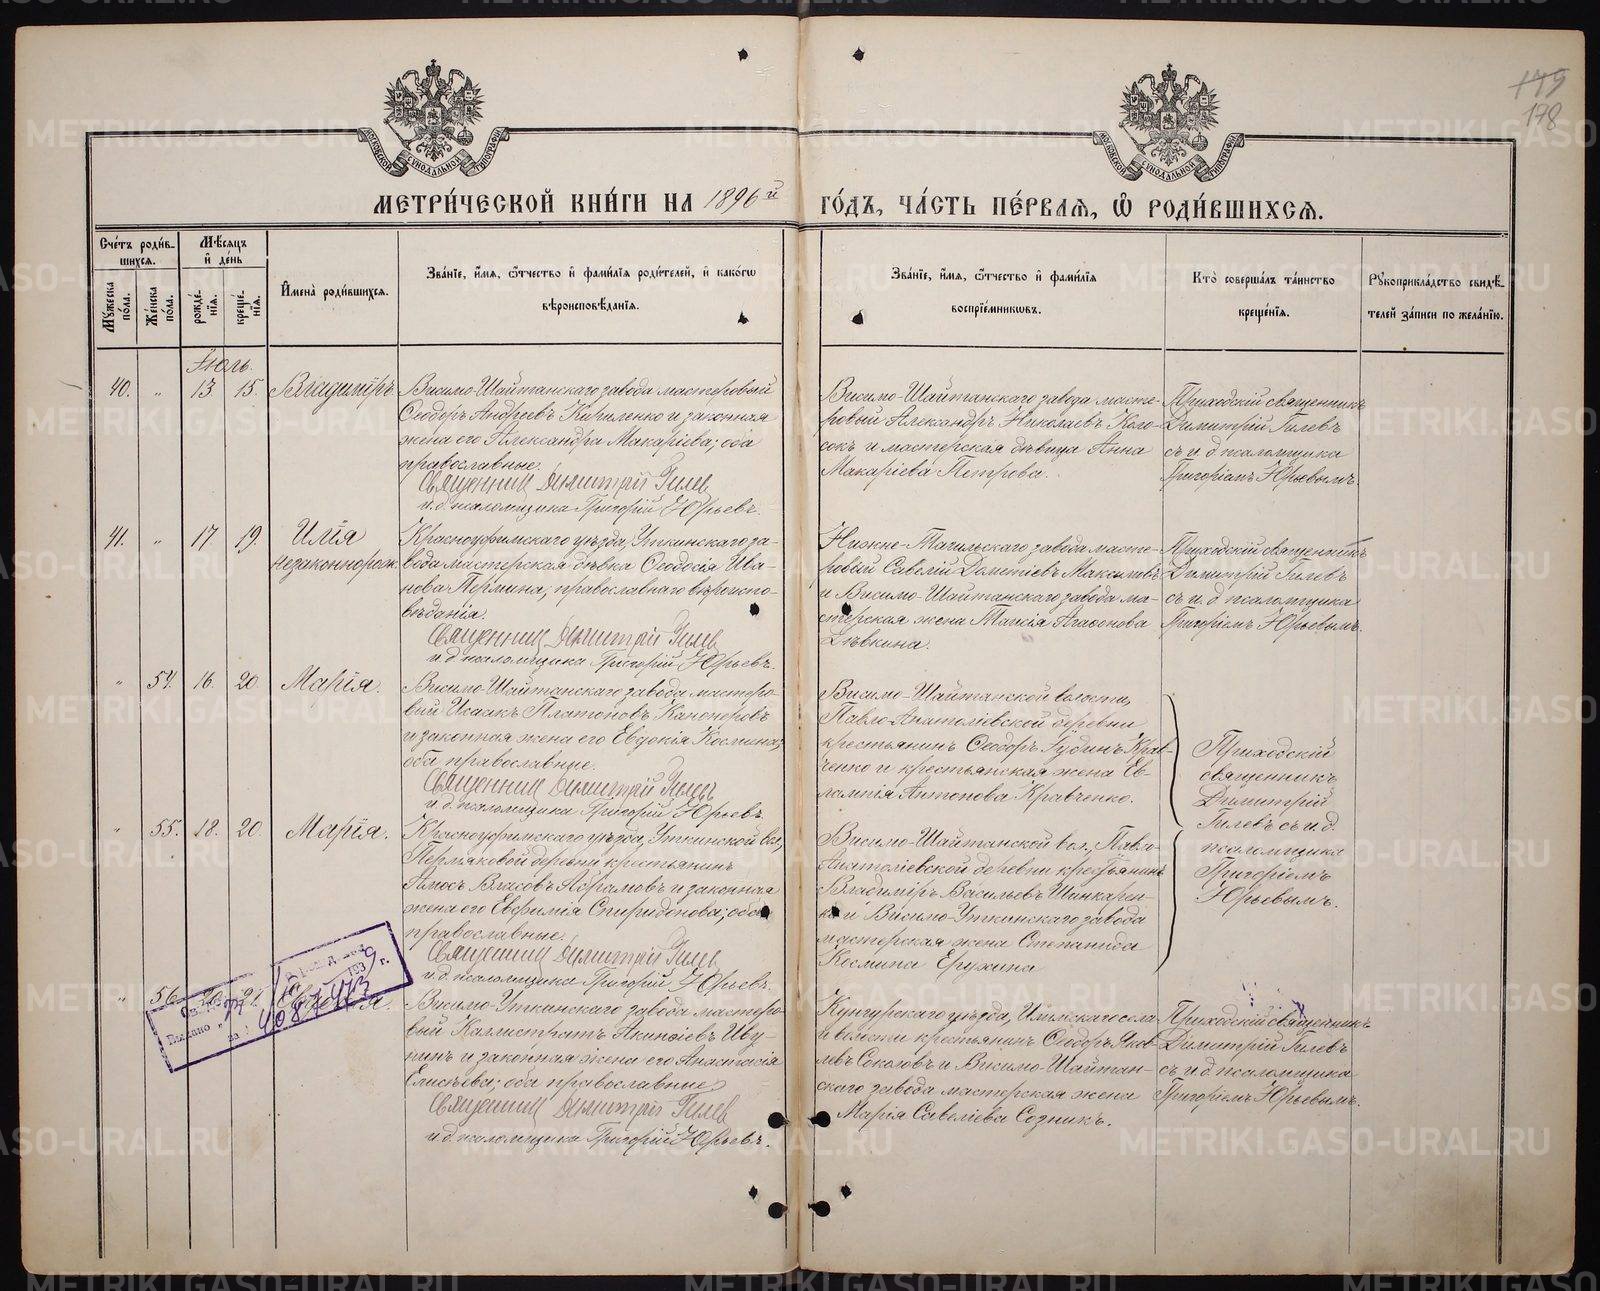 175
178
МОСКОВСКОЙ СѴНОДАЛЬНОЙ ТИПОГРАФІИ
МОСКОВСКОЙ СѴНОДАЛЬНОЙ ТИПОГРАФІИ
МЕТРИ́ЧЕСКОЙ КНИ́ГИ НА 1896й ГО́ДЪ, ЧА́СТЬ ПЕ́РВАѦ, Ѡ҆ РОДИ́ВШИХСѦ.
Сче́тъ роди́в-
шихсѧ.
Мꙋжеска по́ла.
Же́нска по́ла.
Мѣ́сѧцъ
и҆ де́нь
рожде́-
нїѧ.
креще́-
нїѧ.
И҆мена̀ роди́вшихсѧ.
Зва́нїе, и҆́мѧ, ѻ҆́тчество и҆ фами́лїѧ роди́телей, и҆ како́гѡ
вѣроисповѣ́данїѧ.
Зва́нїе, и҆́мѧ, ѻ҆́тчество и҆ фами́лїѧ
воспрїе́мникѡвъ.
Кто̀ соверша́лъ та́инство
креще́нїѧ.
Рꙋкоприкла́дство свидѣ́-
телей за́писи по жела́нїю.
Іюль.
40. " 13. 15. Владиміръ
Висимо-Шайтанскаго завода мастеровый
Ѳеодоръ Андреевъ Кириленко и законная
жена его Александра Макаріева; оба
православные.
Священник Димитрій Гилев
и. д. псаломщика Григорій Юрьевъ.
Висимо-Шайтанскаго завода масте-
ровый Александръ Николаевъ Коло-
сокъ и мастерская дѣвица Анна
Макаріева Петрова.
Приходскій священникъ
Димитрій Гилевъ
съ и. д. псаломщика
Григоріемъ Юрьевымъ.
41. " 17. 19. Илія
незаконнорож.
Красноуфимскаго уѣзда, Уткинскаго за-
вода мастерская дѣвка Ѳеодосія Ива-
нова Пермина, православнаго вѣроиспо-
вѣданія.
Священник Димитрій Гилев
и. д. псаломщика Григорій Юрьевъ.
Нижне-Тагильскаго завода масте-
ровый Савелій Дометіевъ Максимовъ
и Висимо-Шайтанскаго завода ма-
стерская жена Таисія Агаѳонова
Дѣвкина.
Приходскій священникъ
Димитрій Гилевъ
съ и. д. псаломщика
Григоріемъ Юрьевымъ.
" 54. 16. 20. Марія.
Висимо-Шайтанскаго завода мастеро-
вый Исаакъ Платоновъ Канонеровъ
и законная жена его Евдокія Космина;
оба православные.
Священник Димитрій Гилев
и. д. псаломщика Григорій Юрьевъ.
Висимо-Шайтанской волости,
Павло-Анатоліевской деревни
крестьянинъ Ѳеодоръ Гудинъ Крав-
ченко и крестьянская жена Ев-
лампія Антонова Кравченко.
Приходскій
священникъ
Димитрій
Гилевъ съ и. д.
псаломщика
Григоріемъ
Юрьевымъ.
" 55. 18. 20. Марія.
Красноуфимскаго уѣзда, Уткинской вол.,
Пермяковой деревни крестьянинъ
Амосъ Власовъ Абрамовъ и законная
жена его Евфимія Спиридонова; оба
православные.
Священник Димитрій Гилев
и. д. псаломщика Григорій Юрьевъ.
Висимо-Шайтанской вол., Павло-
Анатоліевской деревни крестьянинъ
Владиміръ Васильевъ Шинкарен-
ко и Висимо-Уткинскаго завода
мастерская жена Степанида
Космина Еружина
" 56. 20. 21.
Висимо-Уткинскаго завода мастеро-
вый Каллистратъ Акинѳіевъ Иву-
нинъ и законная жена его Анастасія
Елисѣева; оба православные.
Священник Димитрій Гилев
и. д. псаломщика Григорій Юрьевъ.
Кунгурскаго уѣзда, Илимскаго села
и волости крестьянинъ Ѳеодоръ Яков-
левъ Соколовъ и Висимо-Шайтан-
скаго завода мастерская жена
Марія Савеліева Созникъ.
Приходскій священникъ
Димитрій Гилевъ
съ и. д. псаломщика
Григоріемъ Юрьевымъ.
Выдано 1939 г.
за №
METRIKI.GASO-URAL.RU